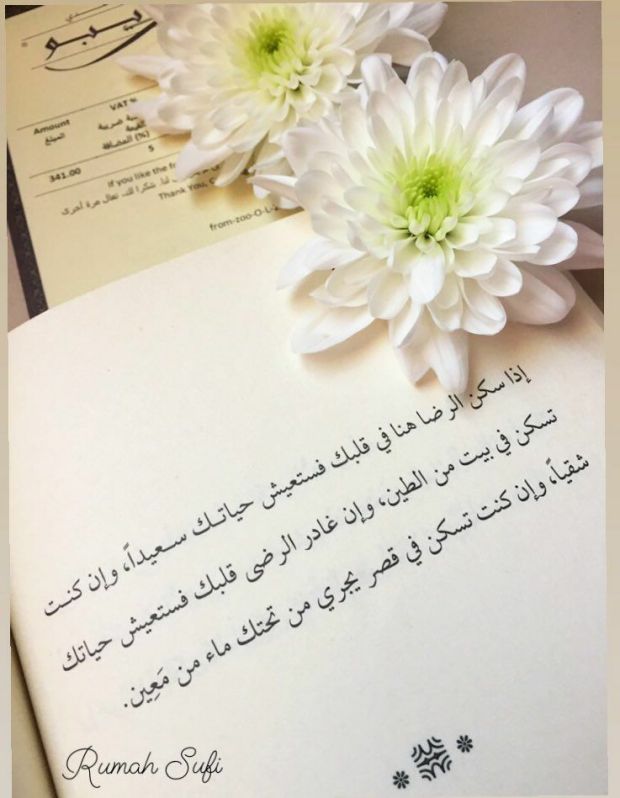 Amount
المبلغ
VAT %
ضريبة
القيمة
المضافة (%)
341.00
5
If you like the
Thank You,
شكرا لك، تعال مرة أخرى
from-zoo-O-L
إذا سكن الرضا هنا في قلبك فستعيش حياتك سعيداً، وإن كنت
تسكن في بيت من الطين، وإن غادر الرضى قلبك فستعيش حياتك
شقياً، وإن كنت تسكن في قصر يجري من تحتك ماء من مَعِين.
Rumah Sufi